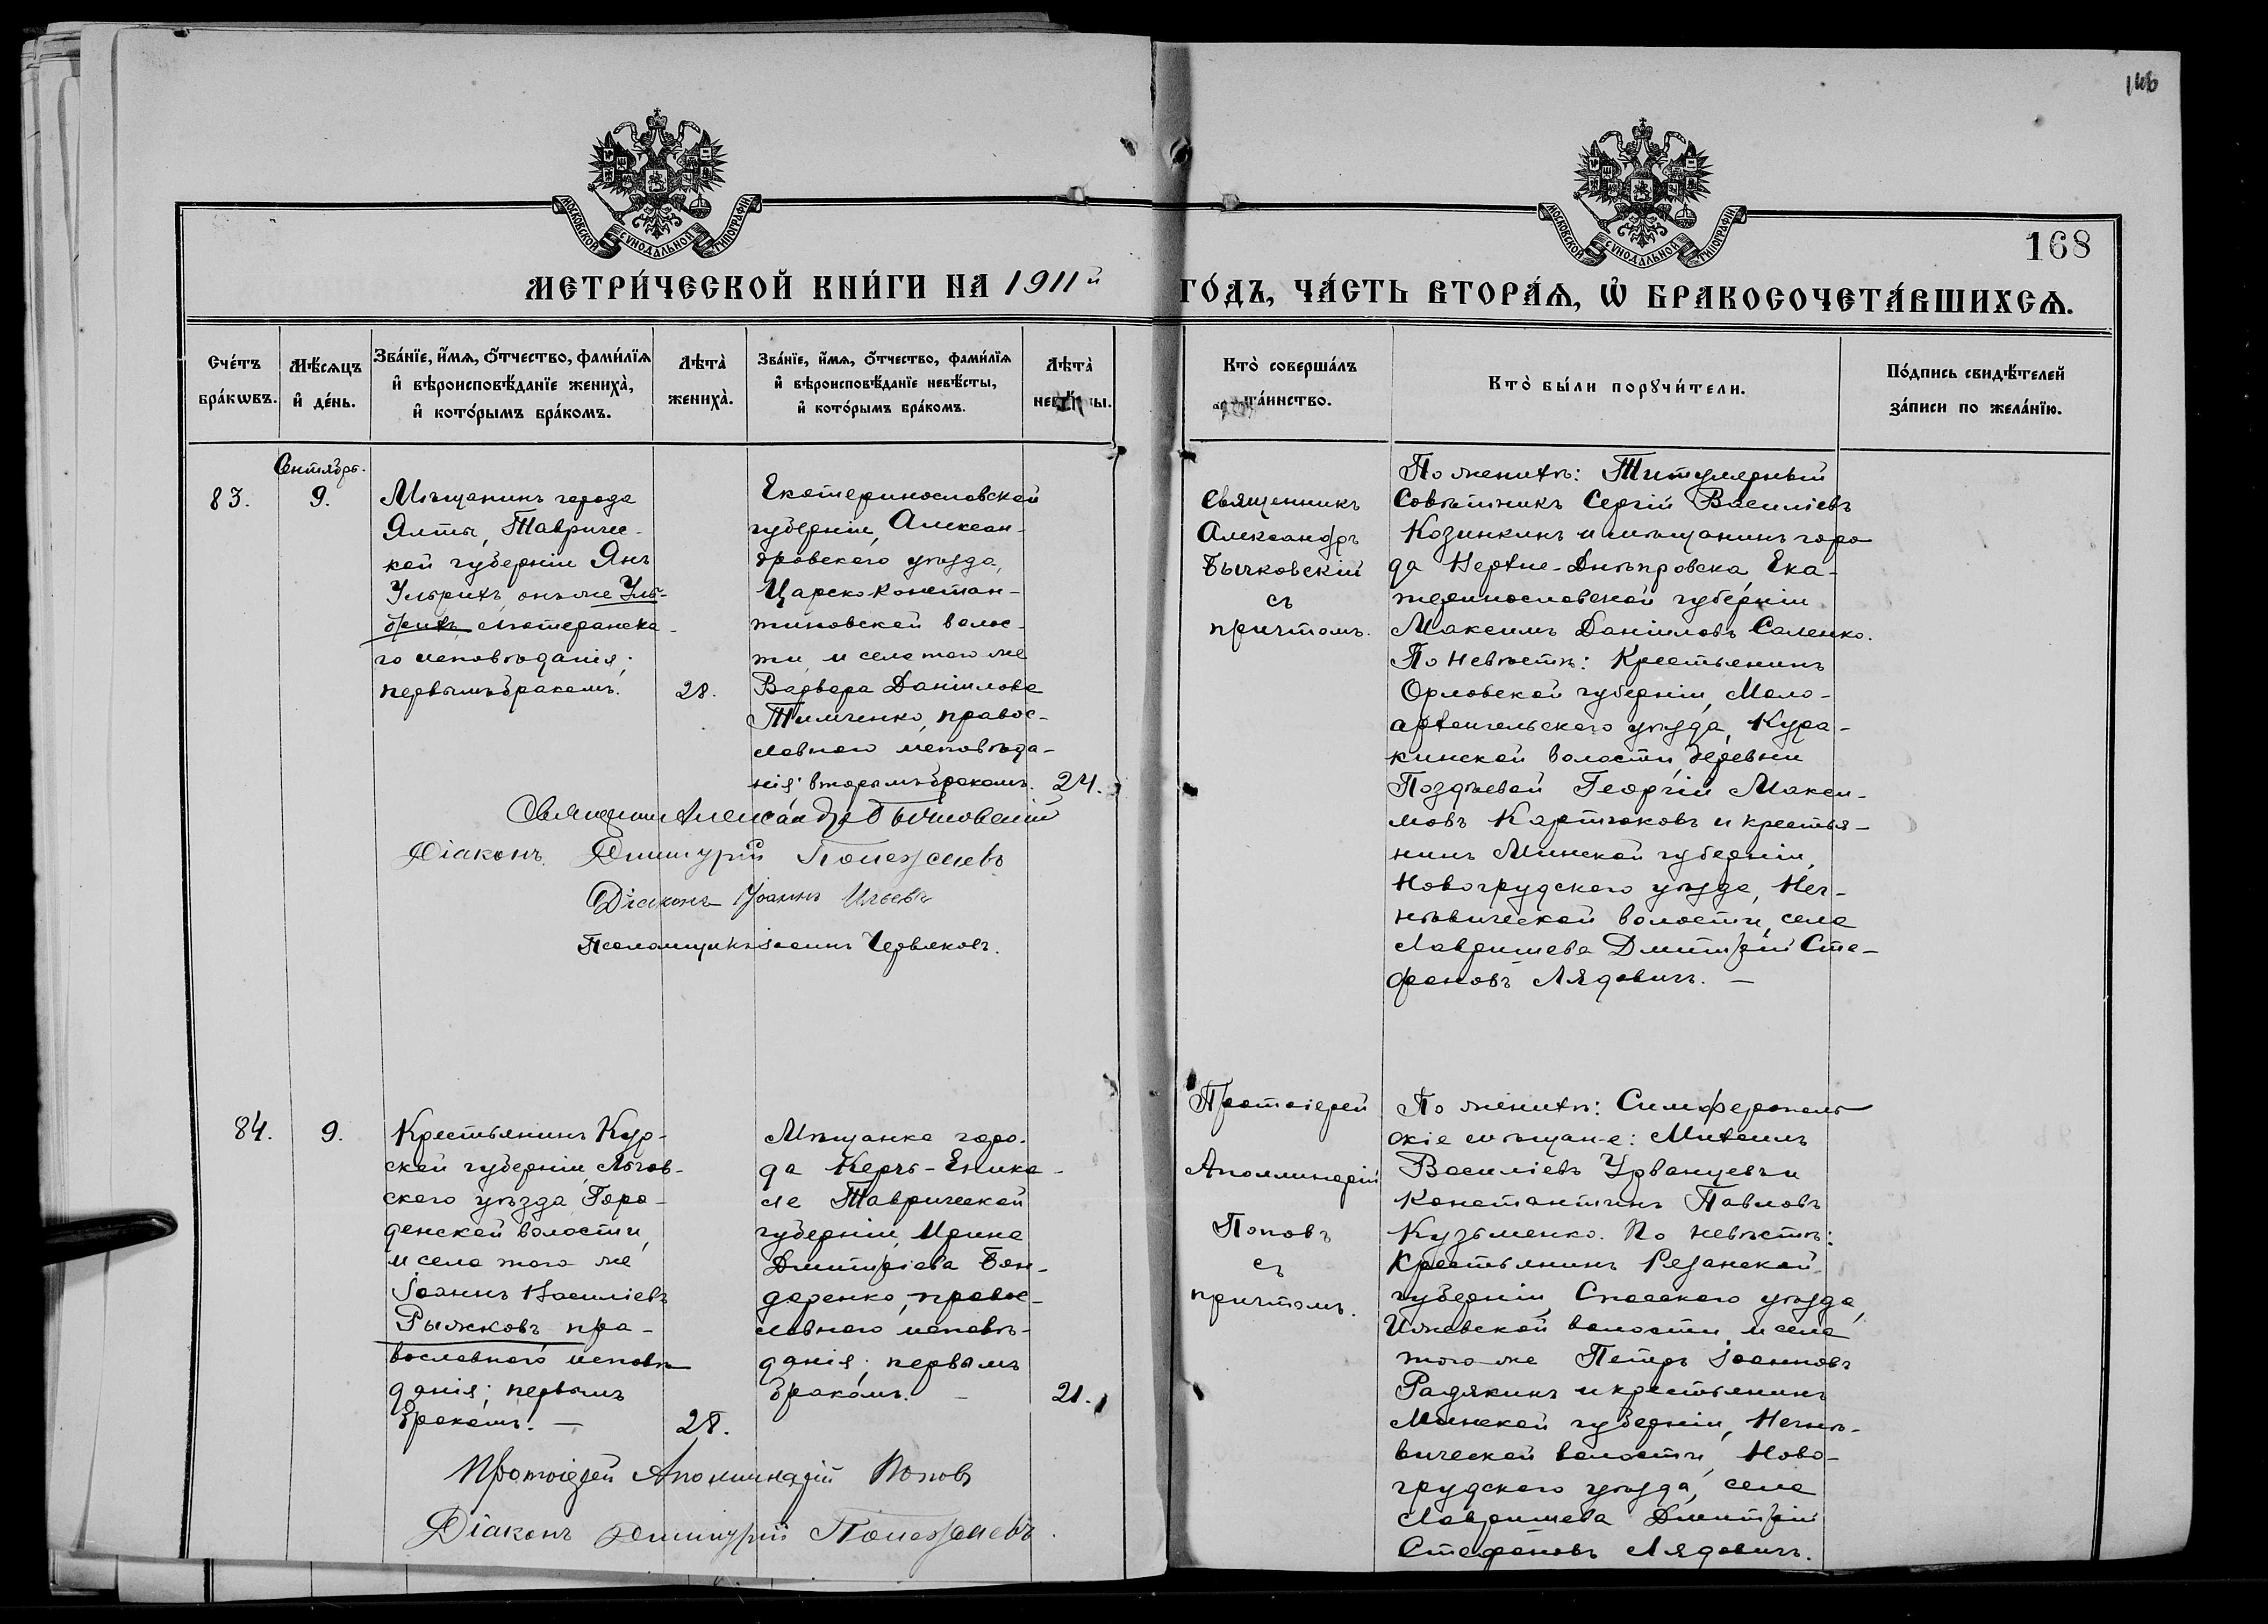 146
МОСКОВСКОЙ СУНОДАЛЬНОЙ ТИПОГРАФІИ
МОСКОВСКОЙ СУНОДАЛЬНОЙ ТИПОГРАФІИ
168
МЕТРИ́ЧЕСКОЙ КНИ́ГИ НА 1911й ГО́ДЪ, ЧА́СТЬ ВТОРА́Ѧ, Ѽ БРАКОСОЧЕТА́ВШИХСѦ.
Сче́тъ
бра́кѡвъ.
Мѣ́сѧцъ
и҆ де́нь.
Зва́нїе, и҆́мѧ, ѻ҆́тчество, фами́лїѧ
и҆ вѣроисповѣ́данїе жениха̀,
и҆ кото́рымъ бра́комъ.
Лѣта̀
жениха̀.
Зва́нїе, и҆́мѧ, ѻ҆́тчество, фами́лїѧ
и҆ вѣроисповѣ́данїе невѣ́сты,
и҆ кото́рымъ бра́комъ.
Лѣта̀
невѣ́сты.
Кто̀ соверша́лъ
та́инство.
Кто̀ бы́ли порꙋчи́тели.
По́дпись свидѣ́телей
за́писи по жела́нїю.
Сентябрь.
83.
9.
Мѣщанинъ города
Ялты, Тавриче-
кой губерніи Янъ
Ульрихъ онъ же Уль-
брихъ, лютеранска-
го исповѣданія;
первымъ бракомъ.
28.
Екатеринославской
губерніи, Алексан-
дровскаго уѣзда,
Царско Констан-
тиновской волос-
ти, и села того же
Варвара Даніилова
Тимченко, правос-
лавнаго исповѣда-
нія; вторымъ бракомъ.
24.
Священникъ Александръ Бычковскій
Діаконъ Димитрій
Діаконъ Іоаннъ Ильевъ
Псаломщикъ Іоаннъ Червяковъ.
Священникъ
Александръ
Бычковскій
съ
причтомъ.
По женихѣ: Титулярный
Совѣтникъ Сергій Василіевъ
Козинкинъ и мѣщанинъ горо
да Верхне-Днѣпровска, Ека-
теринославской губерніи
Максимъ Даніиловъ Саленко.
По невѣстѣ: Крестьянинъ
Орловской губерніи, Мало-
архангельскаго уѣзда, Кура-
кинской волости, деревни
Поздѣевой Георгій Макси-
мовъ Картюковъ и крестья-
нинъ Минской губерніи,
Новогрудскаго уѣзда, Нег-
нѣвической волости, села
Лавришева Дмитрій Сте-
фановъ Лядовичъ. —
84.
9.
Крестьянинъ Кур-
ской губерніи, Льгов-
скаго уѣзда, Горо-
денской волости,
и села того же
Іоаннъ Василіевъ
Рыжковъ, пра-
вославнаго исповѣ
данія; первымъ
бракомъ. —
28.
Мѣщанка горо-
да Керчь-Еника-
ле Таврической
губерніи, Ирина
Димитріева Бон-
даренко, правос-
лавнаго исповѣ-
данія; первымъ
бракомъ. —
21.
Протоіерей Аполлинарій Поповъ
Діаконъ Димитрій
Протоіерей
Аполлинарій
Поповъ
съ
причтомъ.
По женихѣ: Симферополь
скіе мѣщане: Михаилъ
Василіевъ Урванцевъ и
Константинъ Павловъ
Кузьменко. По невѣстѣ:
Крестьянинъ Рязанской
губерніи, Спасскаго уѣзда,
Ижевской волости, и села
того-же Петръ Іоанновъ
Радякинъ и крестьянинъ
Минской губерніи, Негнѣ-
вической волости, Ново-
грудскаго уѣзда, села
Лавришева Дмитрій
Стефановъ Лядовичъ.